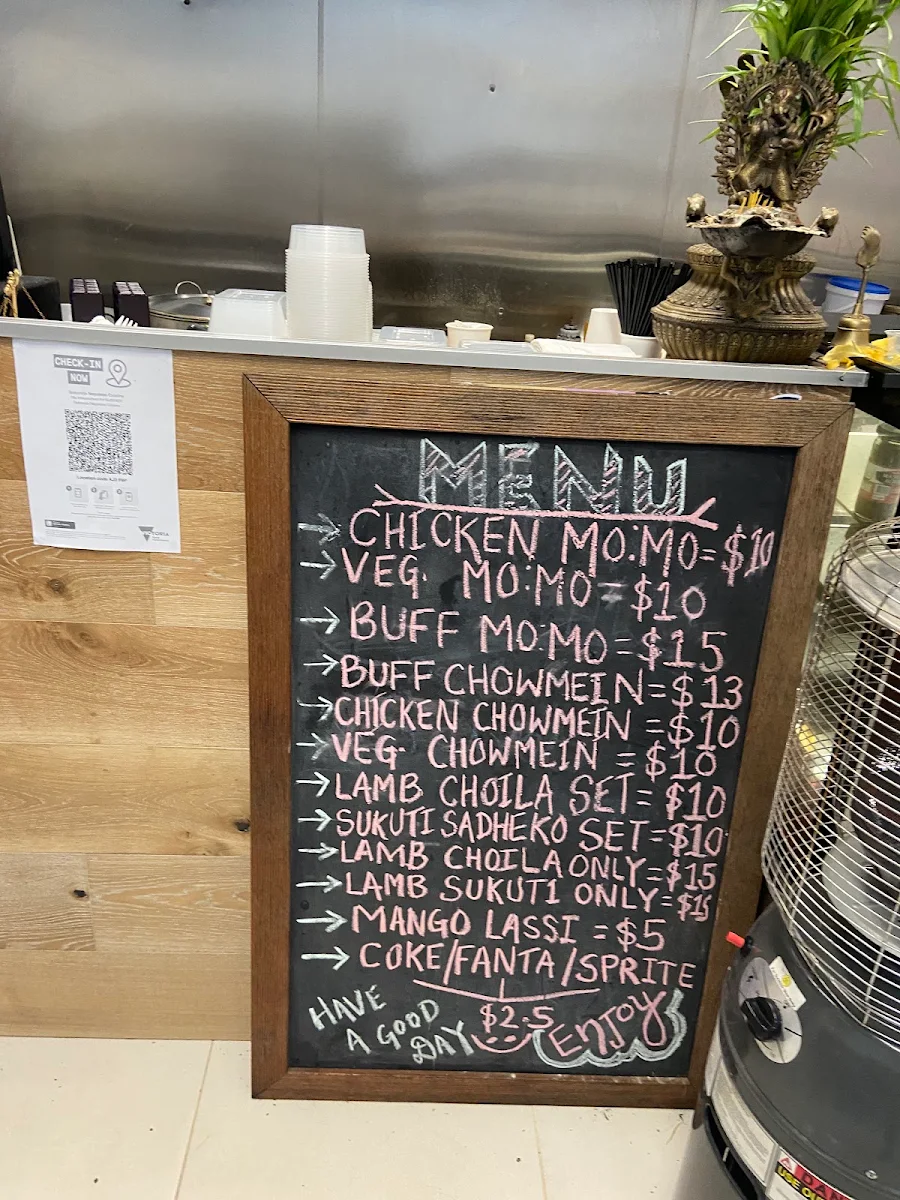 CHECK-IN
NOW
MENU
→ CHICKEN MO:MO = $10
→ VEG. MO:MO = $10
→ BUFF MO:MO = $15
→ BUFF CHOWMEIN = $13
→ CHICKEN CHOWMEIN = $10
→ VEG. CHOWMEIN = $10
→ LAMB CHOILA SET = $10
→ SUKUTI SADHEKO SET = $10
→ LAMB CHOILA ONLY = $15
→ LAMB SUKUTI ONLY = $15
→ MANGO LASSI = $5
→ COKE/FANTA/SPRITE
$2.5
HAVE
A GOOD
DAY
ENJOY